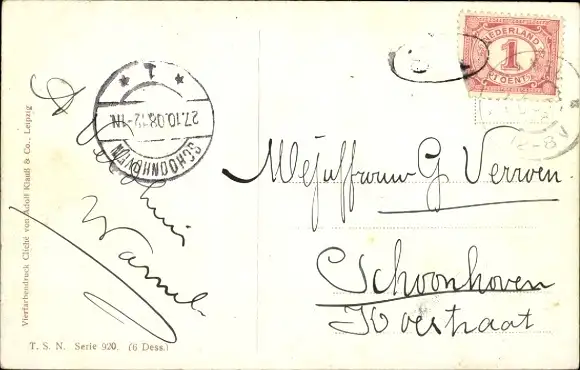 NEDERLAND
1
CENT
SCHOONHOVEN
27.10.08.12-1N.
* 1 *
12-8V
Mejuffrouw G Verwen
Schoonhoven
Koestraat
Vierfarbendruck Cliché von Adolf Klauß & Co., Leipzig
T. S. N. Serie 920. (6 Dess.)